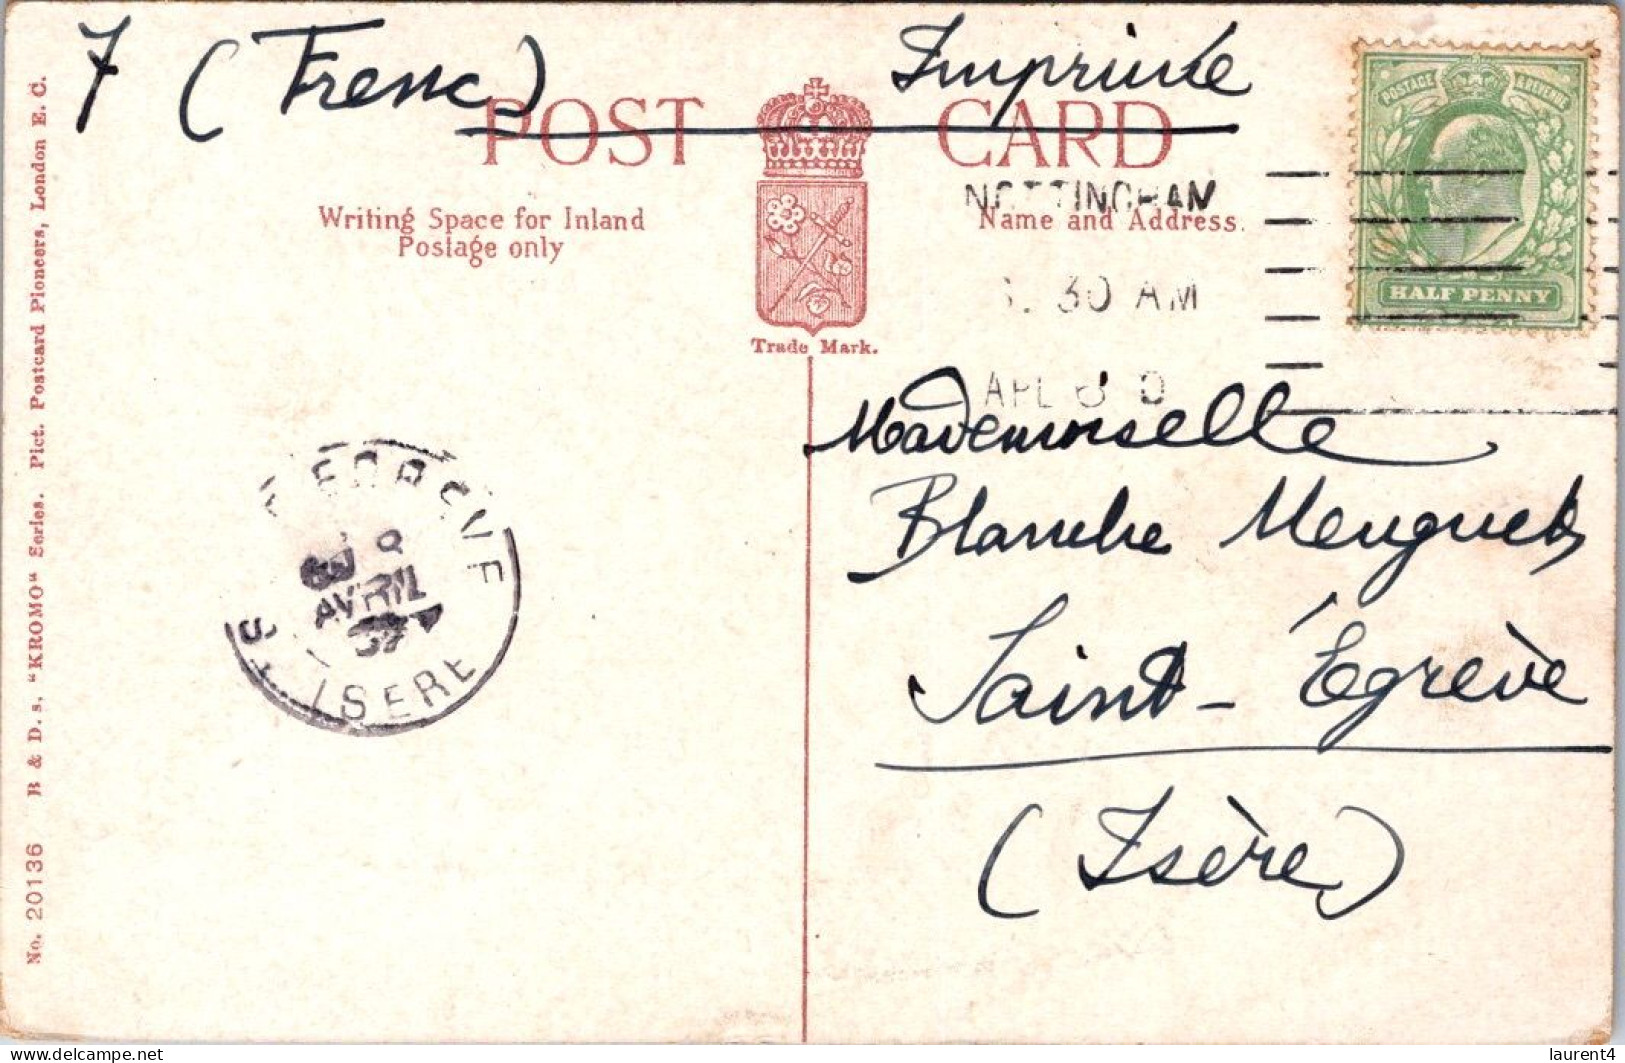 7 (Frenc) Imprimée
POST CARD
POSTAGE & REVENUE
HALF PENNY
Writing Space for Inland
Postage only
Name and Address.
NOTTINGHAM
30 AM
APL
Trade Mark.
Mademoiselle
Blanche
Saint-Égrève
(Isère)
ST EGREVE
8
AVRIL
ISERE
No. 20136 B & D. s. "KROMO" Series. Pict. Postcard Pioneers, London E. C.
www.delcampe.net
laurent4